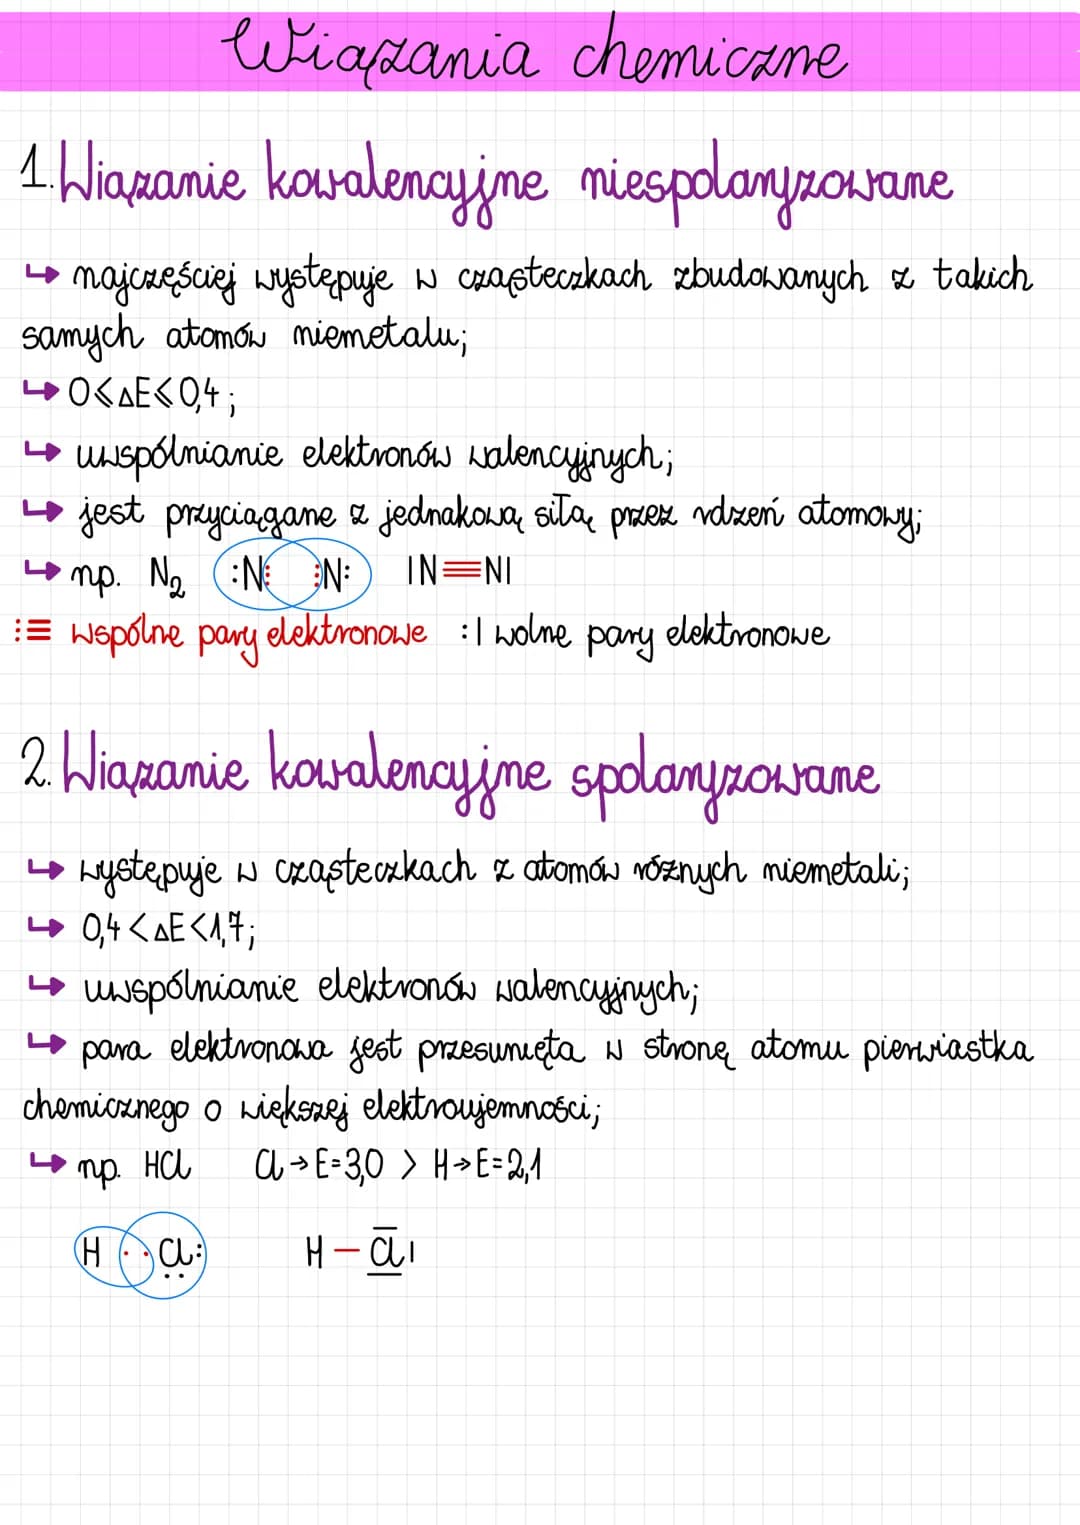 Wiązania chemiczne
1. Wiązanie kowalencyjne niespolaryzowane
↳ najczęściej występuje w cząsteczkach zbudowanych z takich
samych atomów niemetalu;
↳ 0⩽ΔE⩽0,4;
↳ uwspólnianie elektronów walencyjnych;
↳ jest przyciągane z jednakową siłą przez rdzeń atomowy;
↳ np. N₂ :N⋮ ⋮N: IN≡NI
⋮≡ wspólne pary elektronowe :I wolne pary elektronowe
2. Wiązanie kowalencyjne spolaryzowane
↳ występuje w cząsteczkach z atomów różnych niemetali;
↳ 0,4<ΔE<1,7;
↳ uwspólnianie elektronów walencyjnych;
↳ para elektronowa jest przesunięta w stronę atomu pierwiastka
chemicznego o większej elektroujemności;
↳ np. HCl Cl→E=3,0 > H→E=2,1
H ·· Cl: H – Cl I